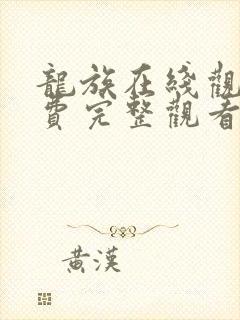 龍族在綫觀
費完整觀看
黃漢